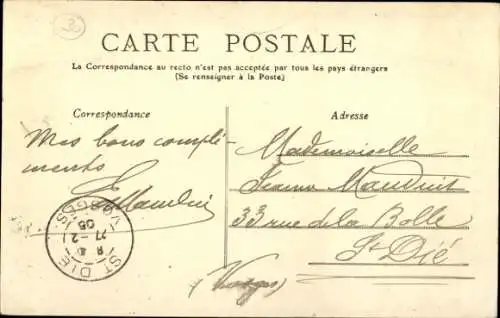 30
CARTE POSTALE
La Correspondance au recto n'est pas acceptée par tous les pays étrangers
(Se renseigner à la Poste)
Correspondance
Mes bons complé-
ments
Adresse
Mademoiselle
Jeanne Mauduit
33 rue de la Bolle
St Dié
(Vosges)
ST DIÉ
27-2
05
VOSGES